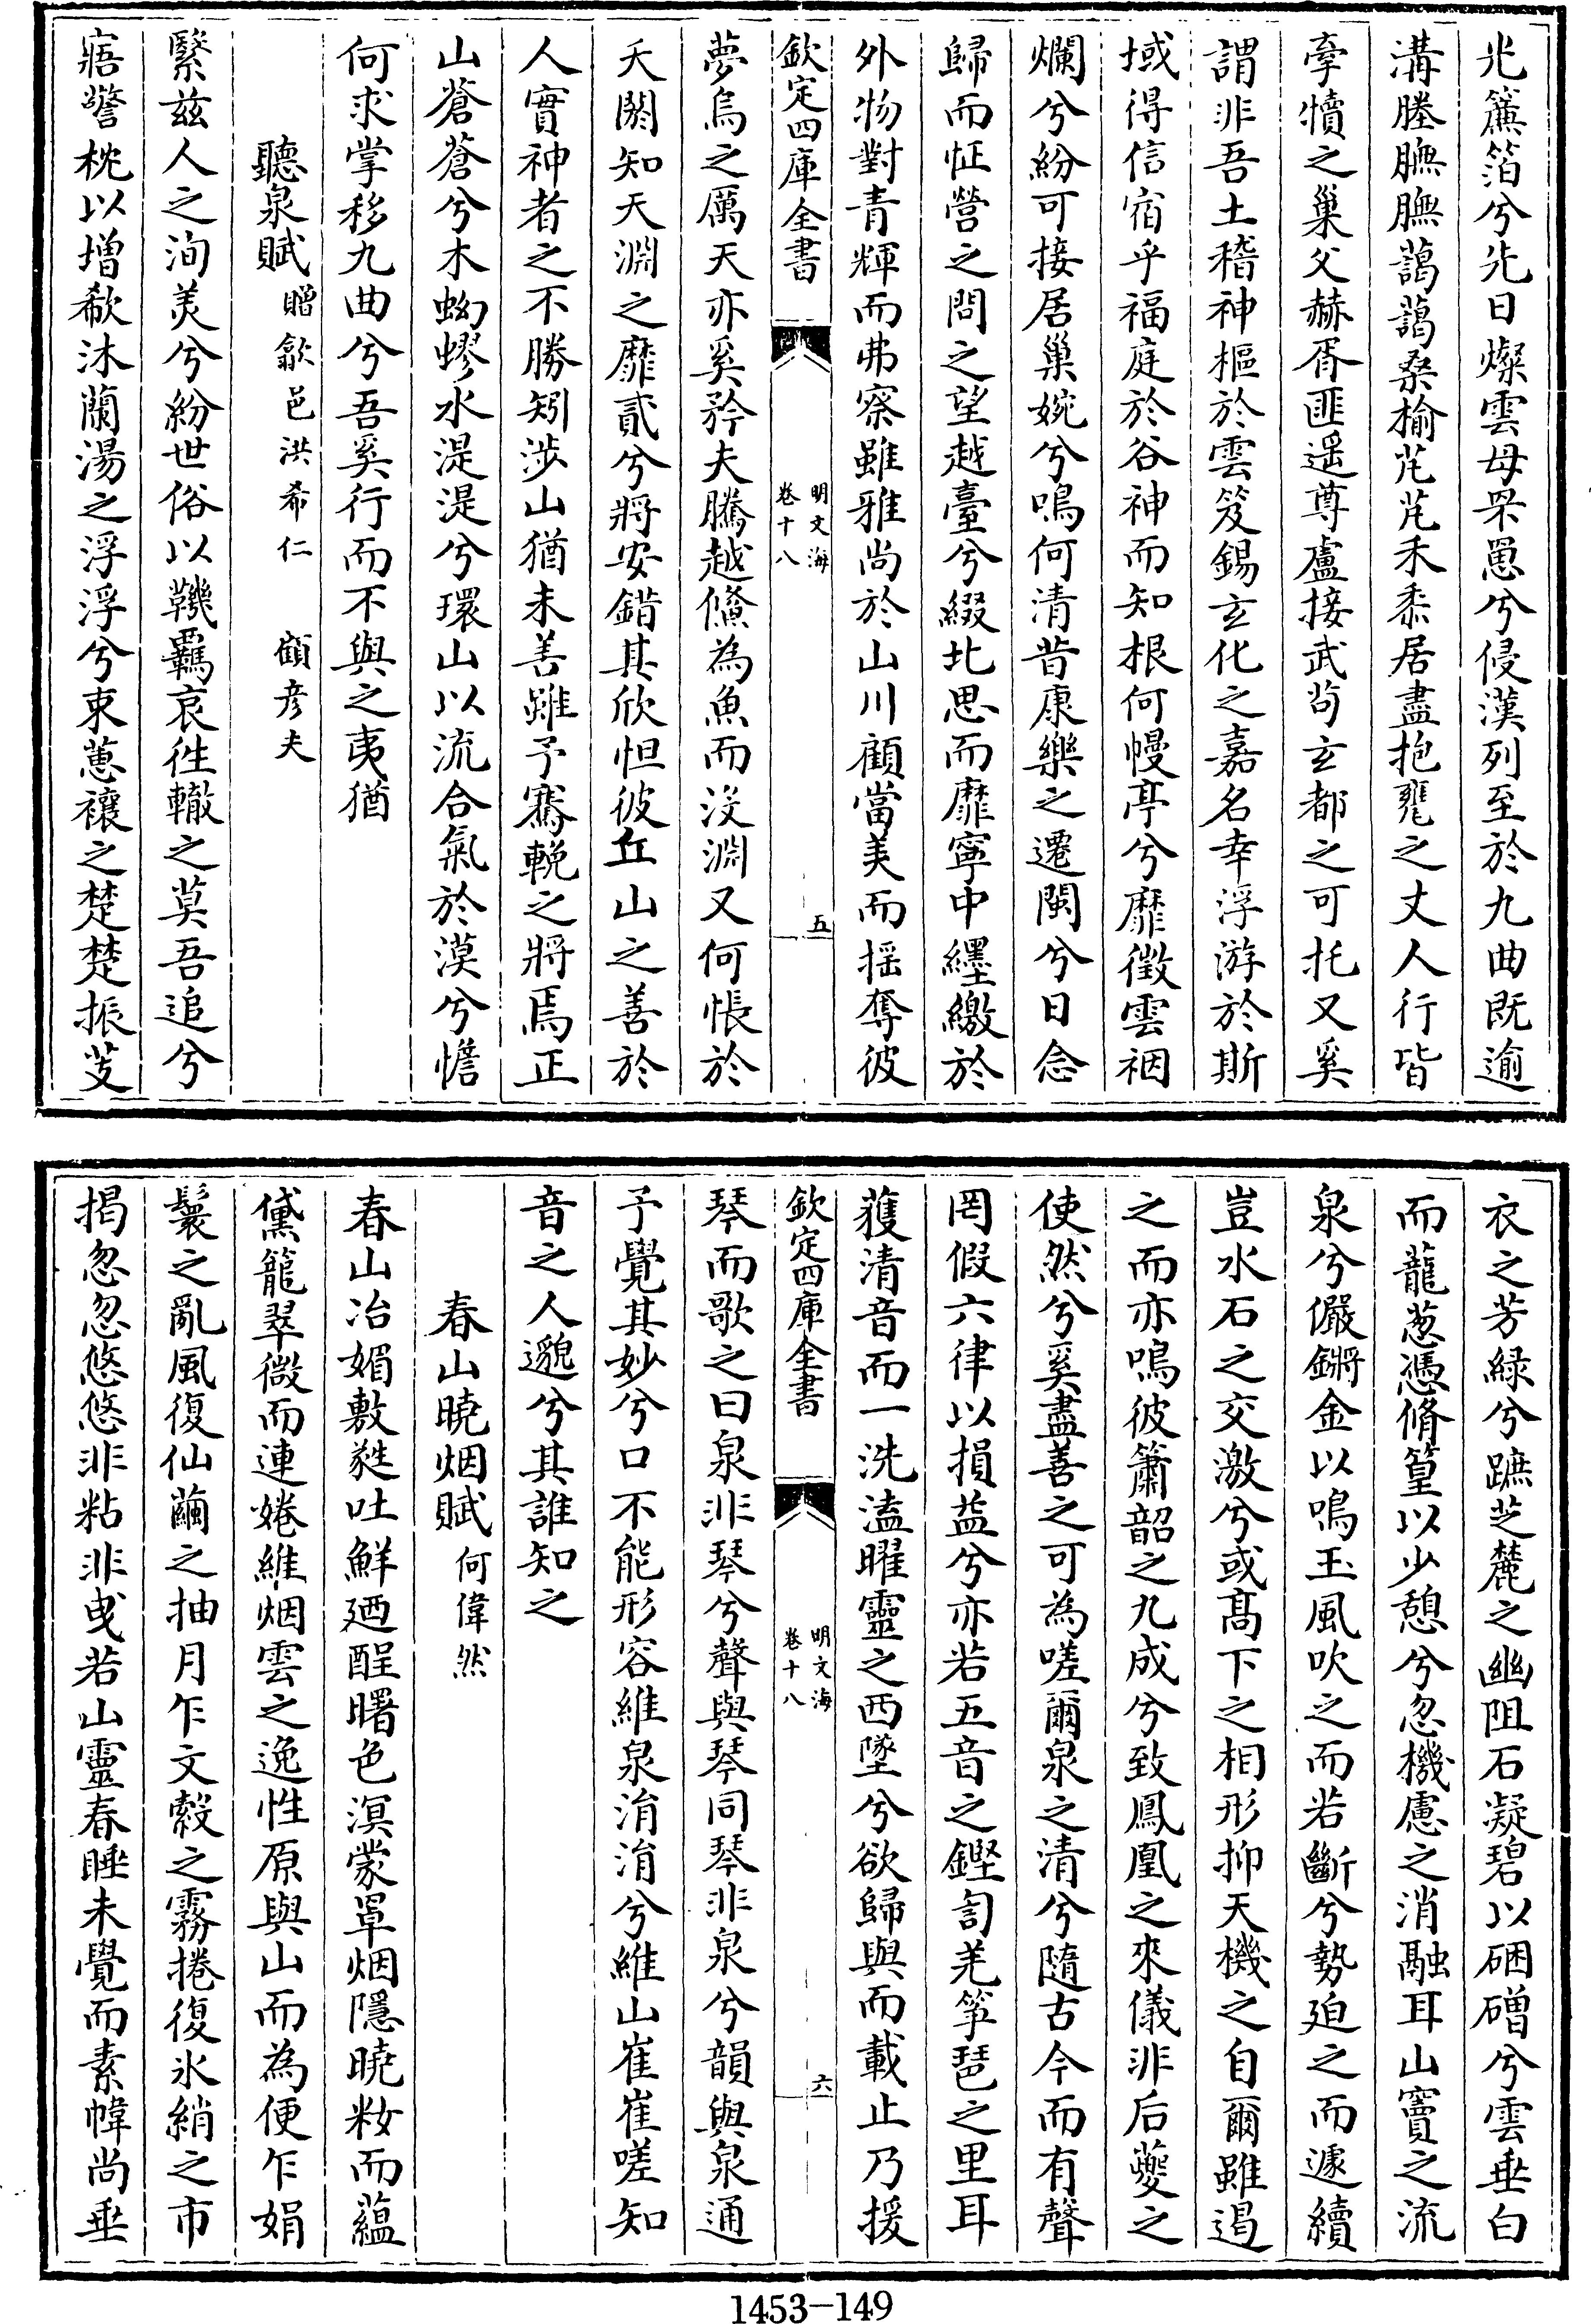 光簾箔兮先日燦雲母罘罳兮侵漢列至於九曲既逾
溝塍膴膴藹藹桑榆芃芃禾黍居盡抱甕之丈人行皆
牽犢之巢父赫胥匪遥尊盧接武茍玄都之可托又奚
謂非吾土稽神樞於雲笈錫玄化之嘉名幸浮游於斯
域得信宿乎福庭於谷神而知根何幔亭兮靡徴雲裀
爛兮紛可接居巢婉兮鳴何清昔康樂之遷閩兮日念
歸而怔營之問之望越臺兮綴北思而靡寧中纆繳於
外物對青輝而弗察雖雅尚於山川顧當美而揺奪彼
欽定四庫全書
明文海
卷十八
五
夢鳥之厲天亦奚矜夫騰越儵為魚而没淵又何悵於
夭閼知天淵之靡貳兮將安錯其欣怛彼丘山之善於
人實神者之不勝矧涉山猶未善雖予騫輗之將焉正
山蒼蒼兮木蚴蟉水湜湜兮環山以流合氣於漠兮憺
何求掌移九曲兮吾奚行而不與之夷猶
聽泉賦 贈歙邑洪希仁 顧彦夫
繄兹人之洵美兮紛世俗以鞿羈哀徃轍之莫吾追兮
寤警枕以增欷沐蘭湯之浮浮兮束蕙禳之楚楚振芰
衣之芳緑兮蹠芝麓之幽阻石凝碧以硱磳兮雲垂白
而蘢葱憑脩篁以少憩兮忽機慮之消融耳山竇之流
泉兮儼鏘金以鳴玉風吹之而若斷兮勢廹之而遽續
豈水石之交激兮或髙下之相形抑天機之自爾雖遏
之而亦鳴彼簫韶之九成兮致鳳凰之來儀非后夔之
使然兮奚盡善之可為嗟爾泉之清兮隨古今而有聲
罔假六律以損益兮亦若五音之鏗訇羌箏琶之里耳
蒦清音而一洗溘曜靈之西墜兮欲歸與而載止乃援
欽定四庫全書
明文海
卷十八
六
琴而歌之曰泉非琴兮聲與琴同琴非泉兮韻與泉通
予覺其妙兮口不能形容維泉涓涓兮維山崔崔嗟知
音之人邈兮其誰知之
春山曉烟賦 何偉然
春山冶媚敷蕤吐鮮廼酲曙色溟蒙罩烟隱曉籹而蘊
黛籠翠微而連娩維烟雲之逸性原與山而為便乍娟
鬟之亂風復仙繭之抽月乍文縠之霧捲復氷綃之巿
揭忽忽悠悠非粘非曵若山靈春睡未覺而素幃尚垂
1453-149